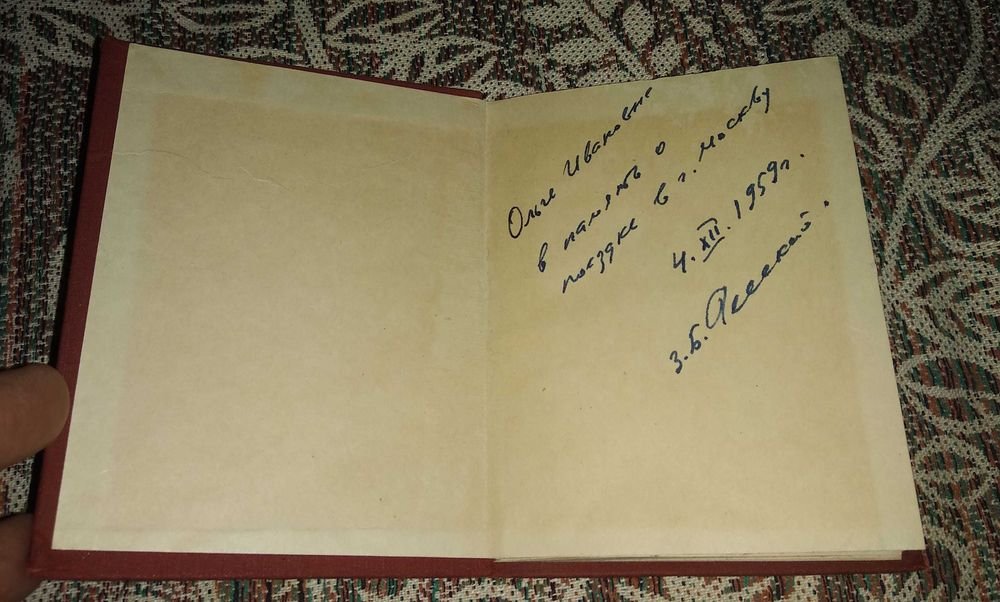 Ольге Ивановне
в память о
поездке в г. Москву
4. XII. 1959г.
З.Б.